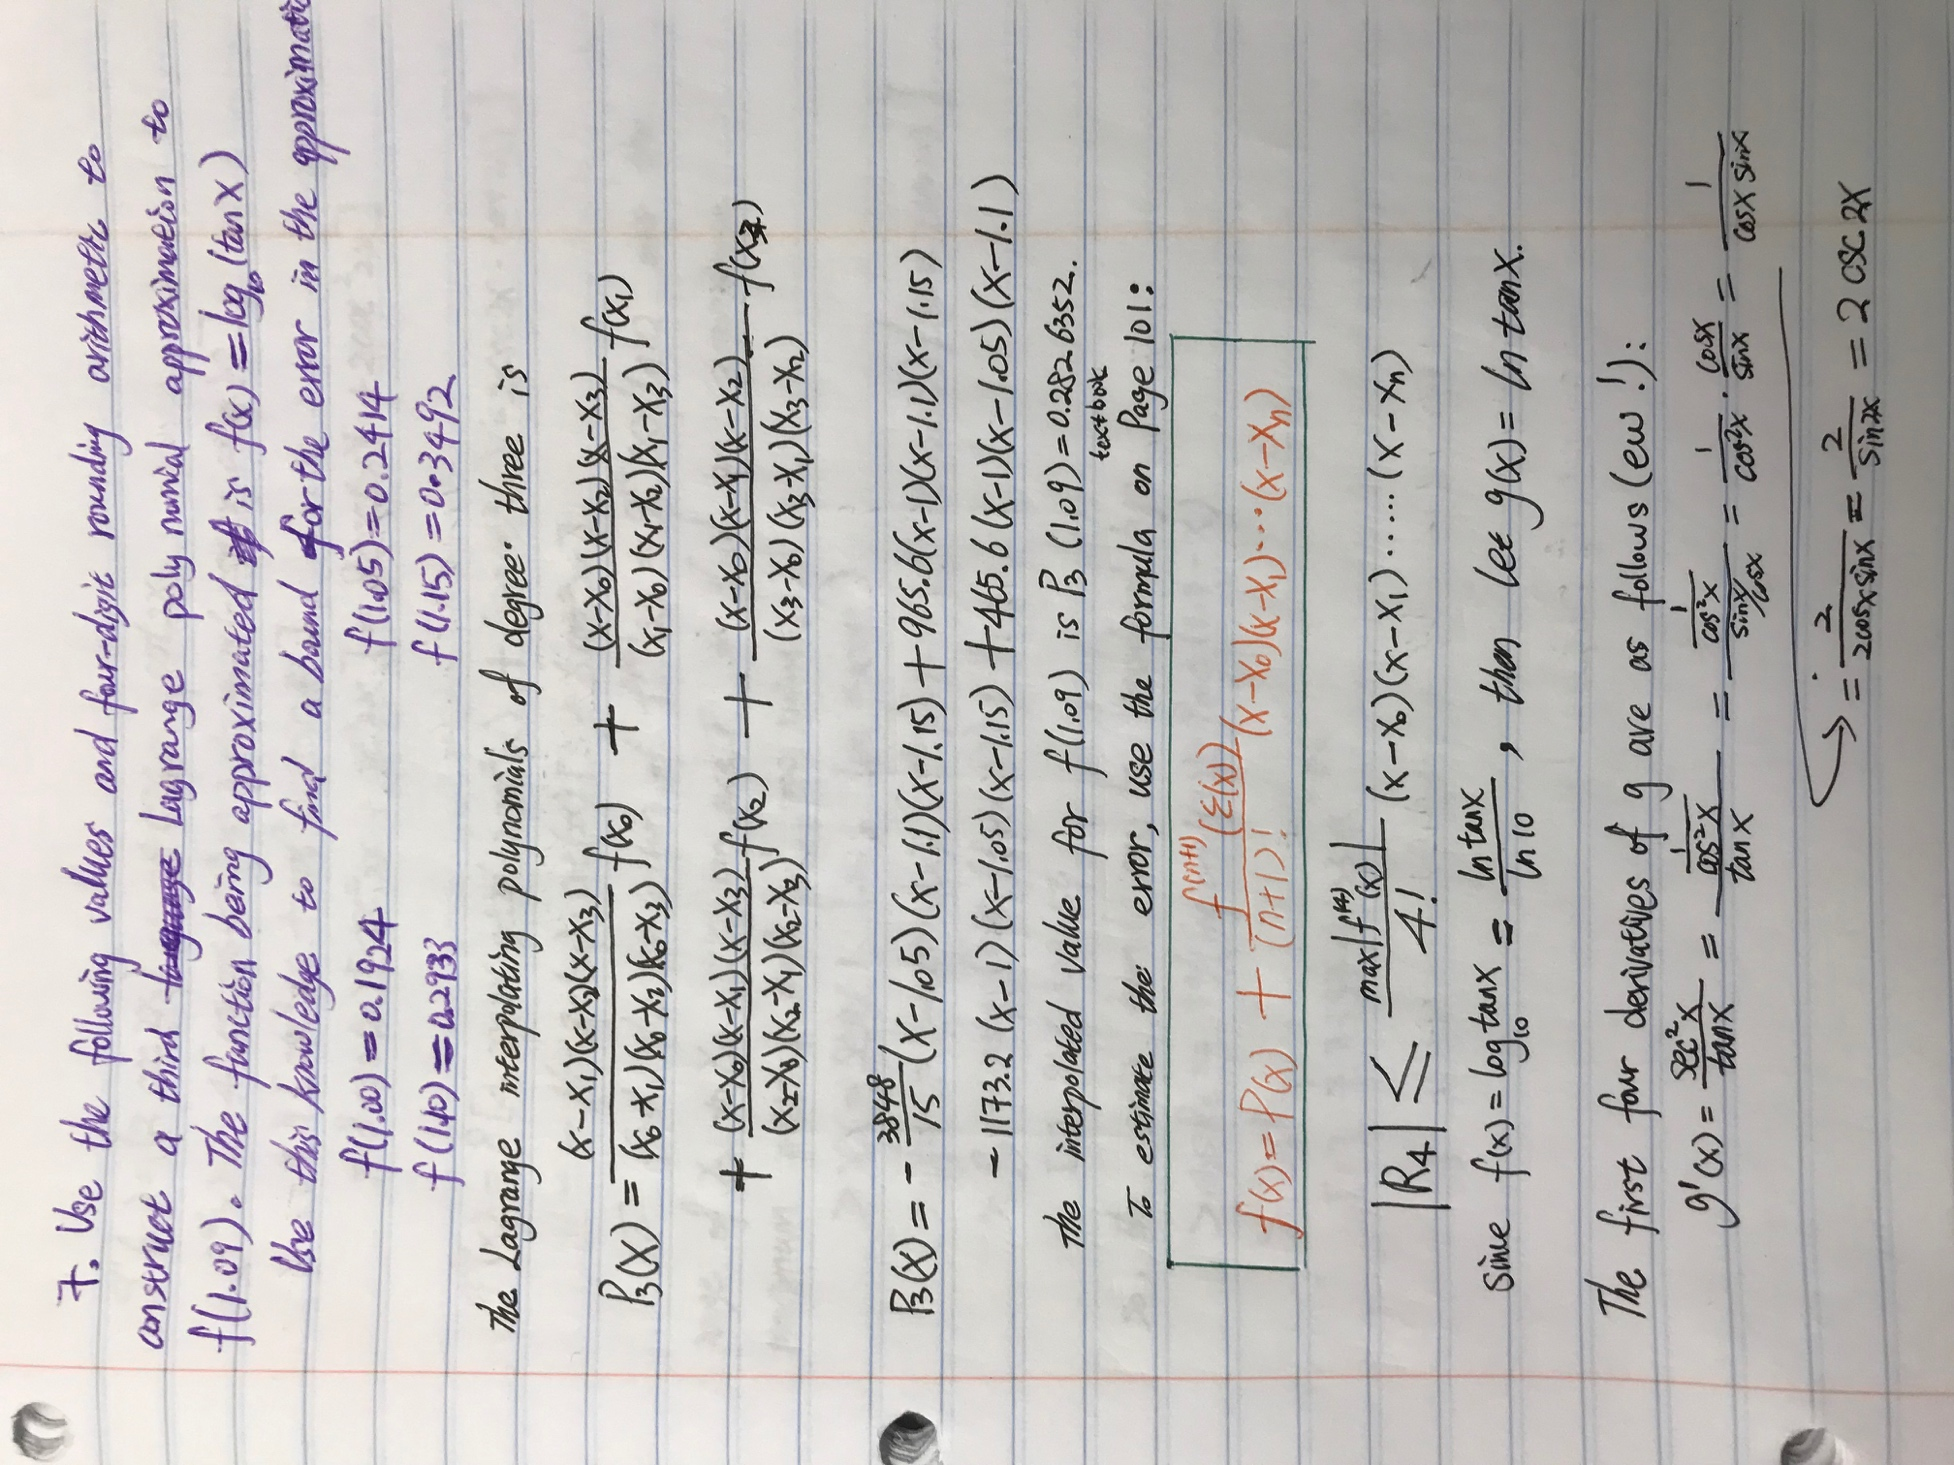 7. Use the following values and four-digit rounding arithmetic to
construct a third Lagrange polynomial approximation to
f(1.09). The function being approximated is f(x)=log₁₀(tanx)
Use this knowledge to find a bound for the error in the approximatio
f(1.00)=0.1924 f(1.05)=0.2414
f(1.10)=0.2933 f(1.15)=0.3492
The Lagrange interpolating polynomials of degree three is
P₃(x) = (x-x₁)(x-x₂)(x-x₃)/(x₀-x₁)(x₀-x₂)(x₀-x₃) f(x₀) + (x-x₀)(x-x₂)(x-x₃)/(x₁-x₀)(x₁-x₂)(x₁-x₃) f(x₁)
+ (x-x₀)(x-x₁)(x-x₃)/(x₂-x₀)(x₂-x₁)(x₂-x₃) f(x₂) + (x-x₀)(x-x₁)(x-x₂)/(x₃-x₀)(x₃-x₁)(x₃-x₂) f(x₃)
P₃(x) = -3848/15 (x-1.05)(x-1.1)(x-1.15) + 965.6(x-1)(x-1.1)(x-1.15)
-1173.2(x-1)(x-1.05)(x-1.15) + 465.6(x-1)(x-1.05)(x-1.1)
The interpolated value for f(1.09) is P₃(1.09)=0.2826352.
To estimate the error, use the formula on textbook Page 101:
f(x)=P(x) + f⁽ⁿ⁺¹⁾(ξ(x))/(n+1)! (x-x₀)(x-x₁)...(x-xₙ)
|R₄| ≤ max|f⁽⁴⁾(x)|/4! (x-x₀)(x-x₁).....(x-xₙ)
Since f(x)=log₁₀tanx = ln tanx/ln10, then let g(x)=ln tanx.
The first four derivatives of g are as follows (ew!):
g'(x) = sec²x/tanx = 1/cos²x/tanx = 1/cos²x/sinx/cosx = 1/cos²x · cosx/sinx = 1/cosx sinx
= 2/2cosx sinx = 2/sin2x = 2 csc 2x